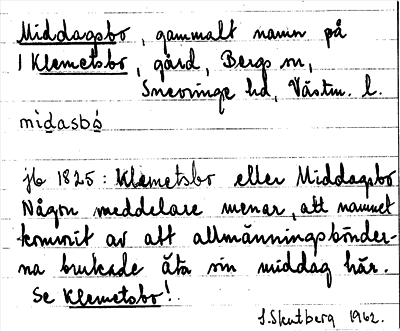 Middagsbo, gammalt namn på
1 Klemetsbo, gård, Bergs sn,
Snevringe hd, Västm. l.
mìdasbó
jb 1825: Klemetsbo eller Middagsbo
Någon meddelare menar, att namnet
kommit av att allmänningsbönder-
na brukade äta sin middag här.
Se Klemetsbo!
S. Skutberg 1962.